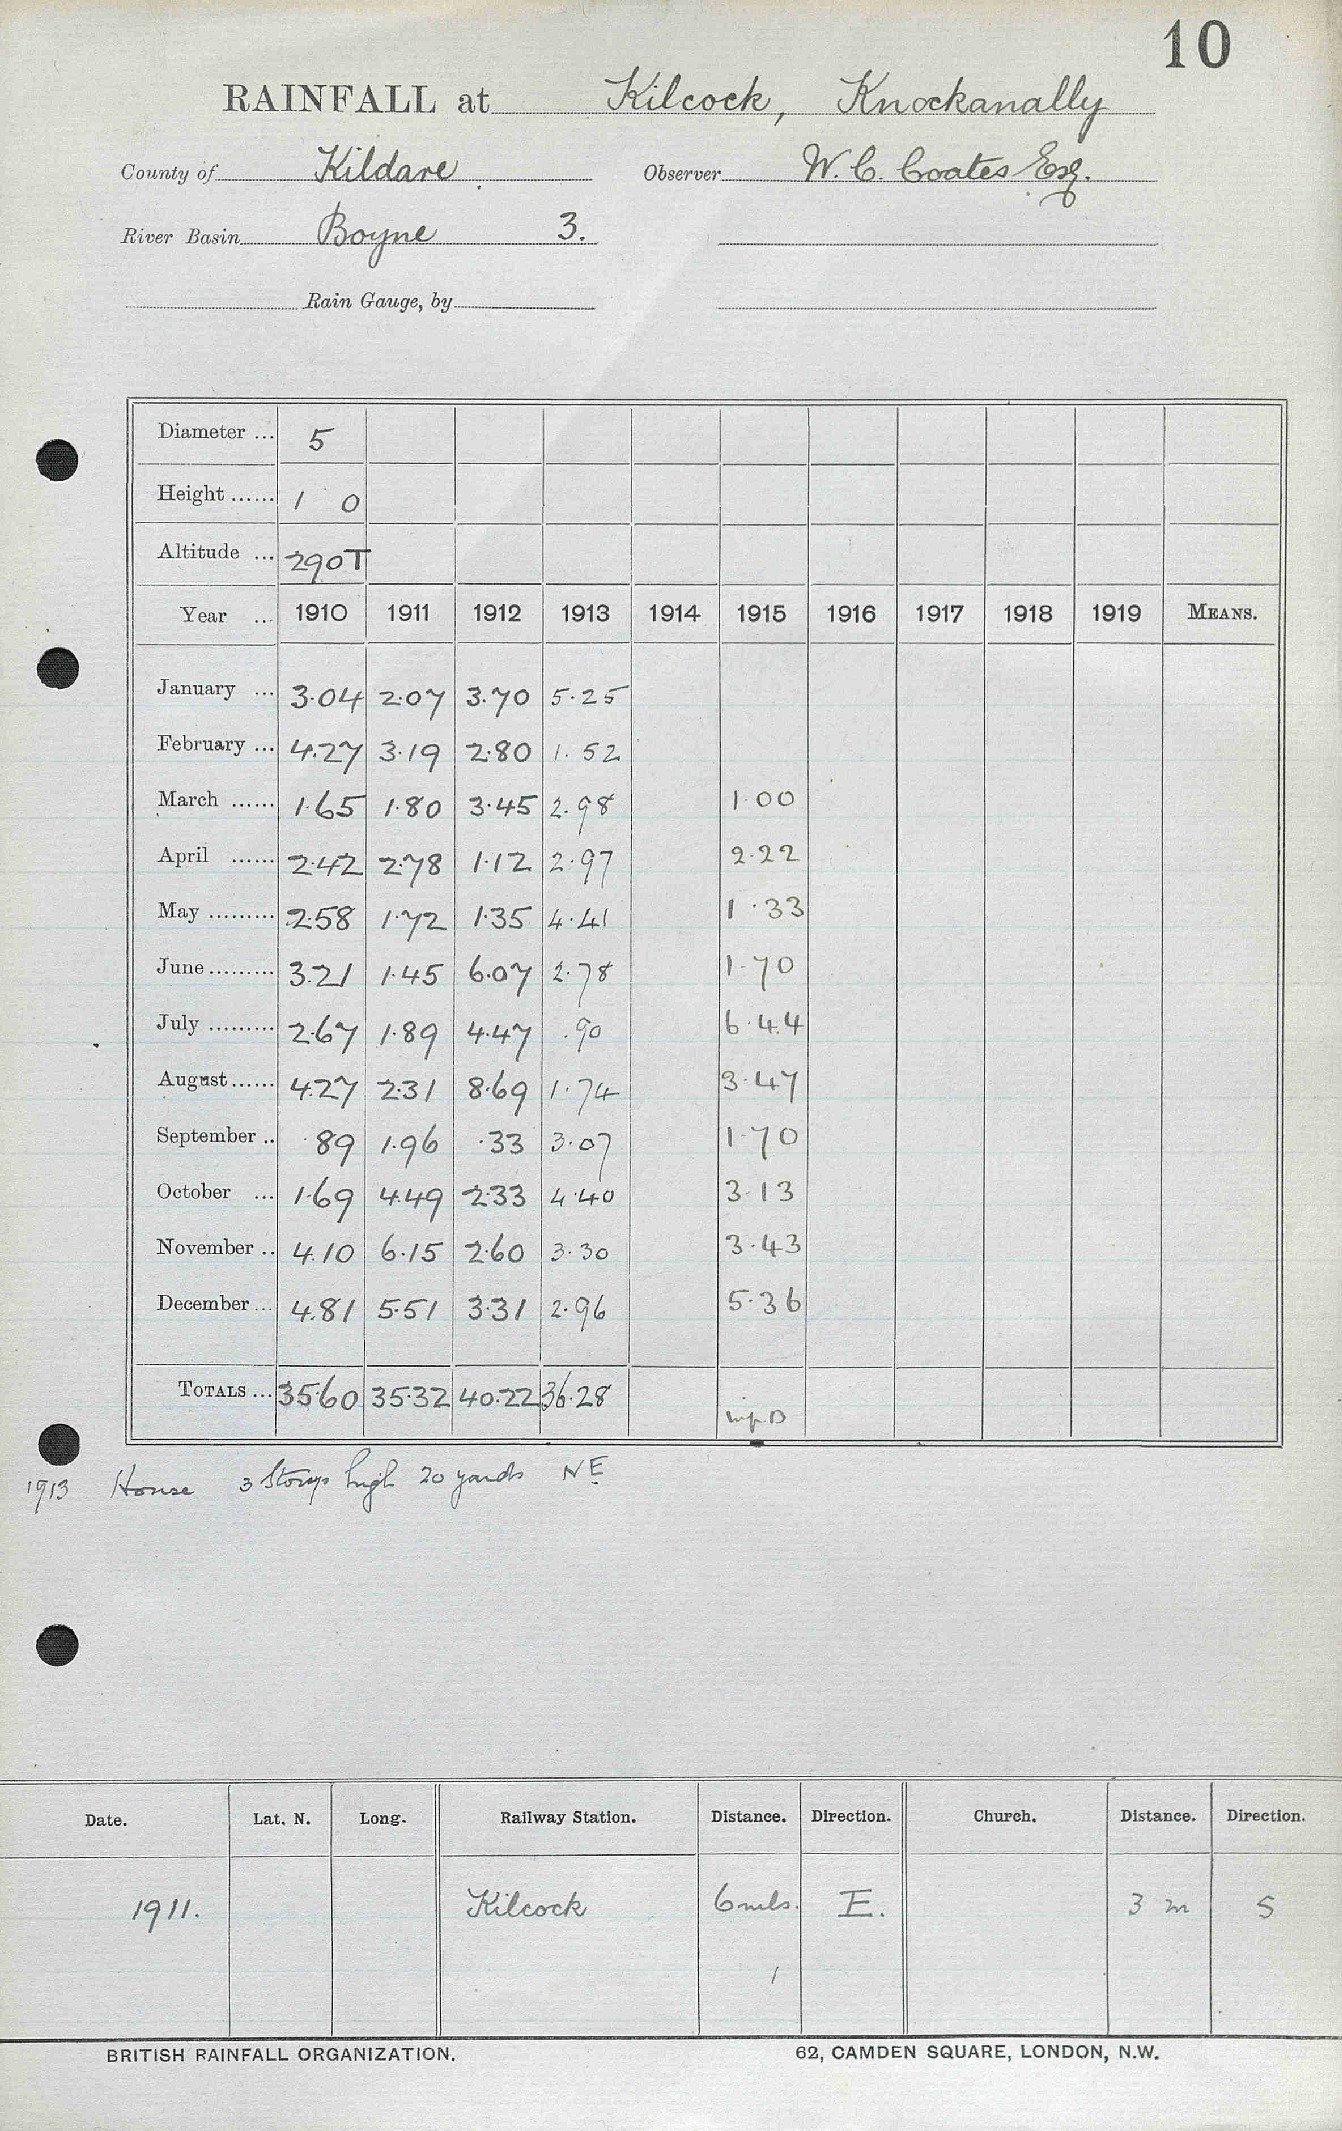 10
RAINFALL at Kilcock, Knockanally
County of Kildare Observer W. C. Coates Esq.
River Basin Boyne 3.
Rain Gauge, by
Diameter ... 5
Height ...... 1 0
Altitude ... 290T
Year ... 1910 1911 1912 1913 1914 1915 1916 1917 1918 1919 MEANS.
January ... 3.04 2.07 3.70 5.25
February ... 4.27 3.19 2.80 1.52
March ...... 1.65 1.80 3.45 2.98 1.00
April ...... 2.42 2.78 1.12 2.97 2.22
May ......... 2.58 1.72 1.35 4.41 1.33
June ......... 3.21 1.45 6.07 2.78 1.70
July ......... 2.67 1.89 4.47 .90 6.44
August ...... 4.27 2.31 8.69 1.74 3.47
September .. .89 1.96 .33 3.07 1.70
October ... 1.69 4.49 2.33 4.40 3.13
November .. 4.10 6.15 2.60 3.30 3.43
December ... 4.81 5.51 3.31 2.96 5.36
TOTALS ... 35.60 35.32 40.22 36.28
1913 House 3 Storeys high 20 yards NE
Date. Lat. N. Long. Railway Station. Distance. Direction. Church. Distance. Direction.
1911. Kilcock 6 mls. E. 3 m S
BRITISH RAINFALL ORGANIZATION. 62, CAMDEN SQUARE, LONDON, N.W.